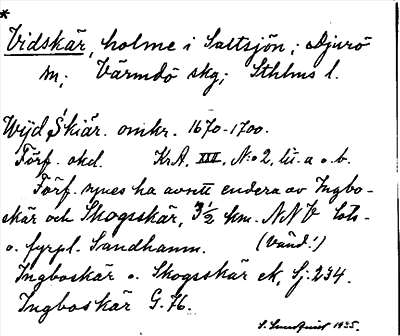 *
Vidskär, holme i Saltsjön; Djurö
sn; Värmdö skg; Sthlms l.
Wijd Skiär. omkr. 1670-1700.
Förf. okd. KrA. III, N:o 2, lit. a o. b.
Förf. synes ha avsett endera av Ingbo-
skär och Skogsskär, 3½ km. NNV lots-
o. fyrpl. Sandhamn. (Vänd!)
Ingboskär o. Skogsskär ek, Sj. 234.
Ingboskär G. 76.
1935.